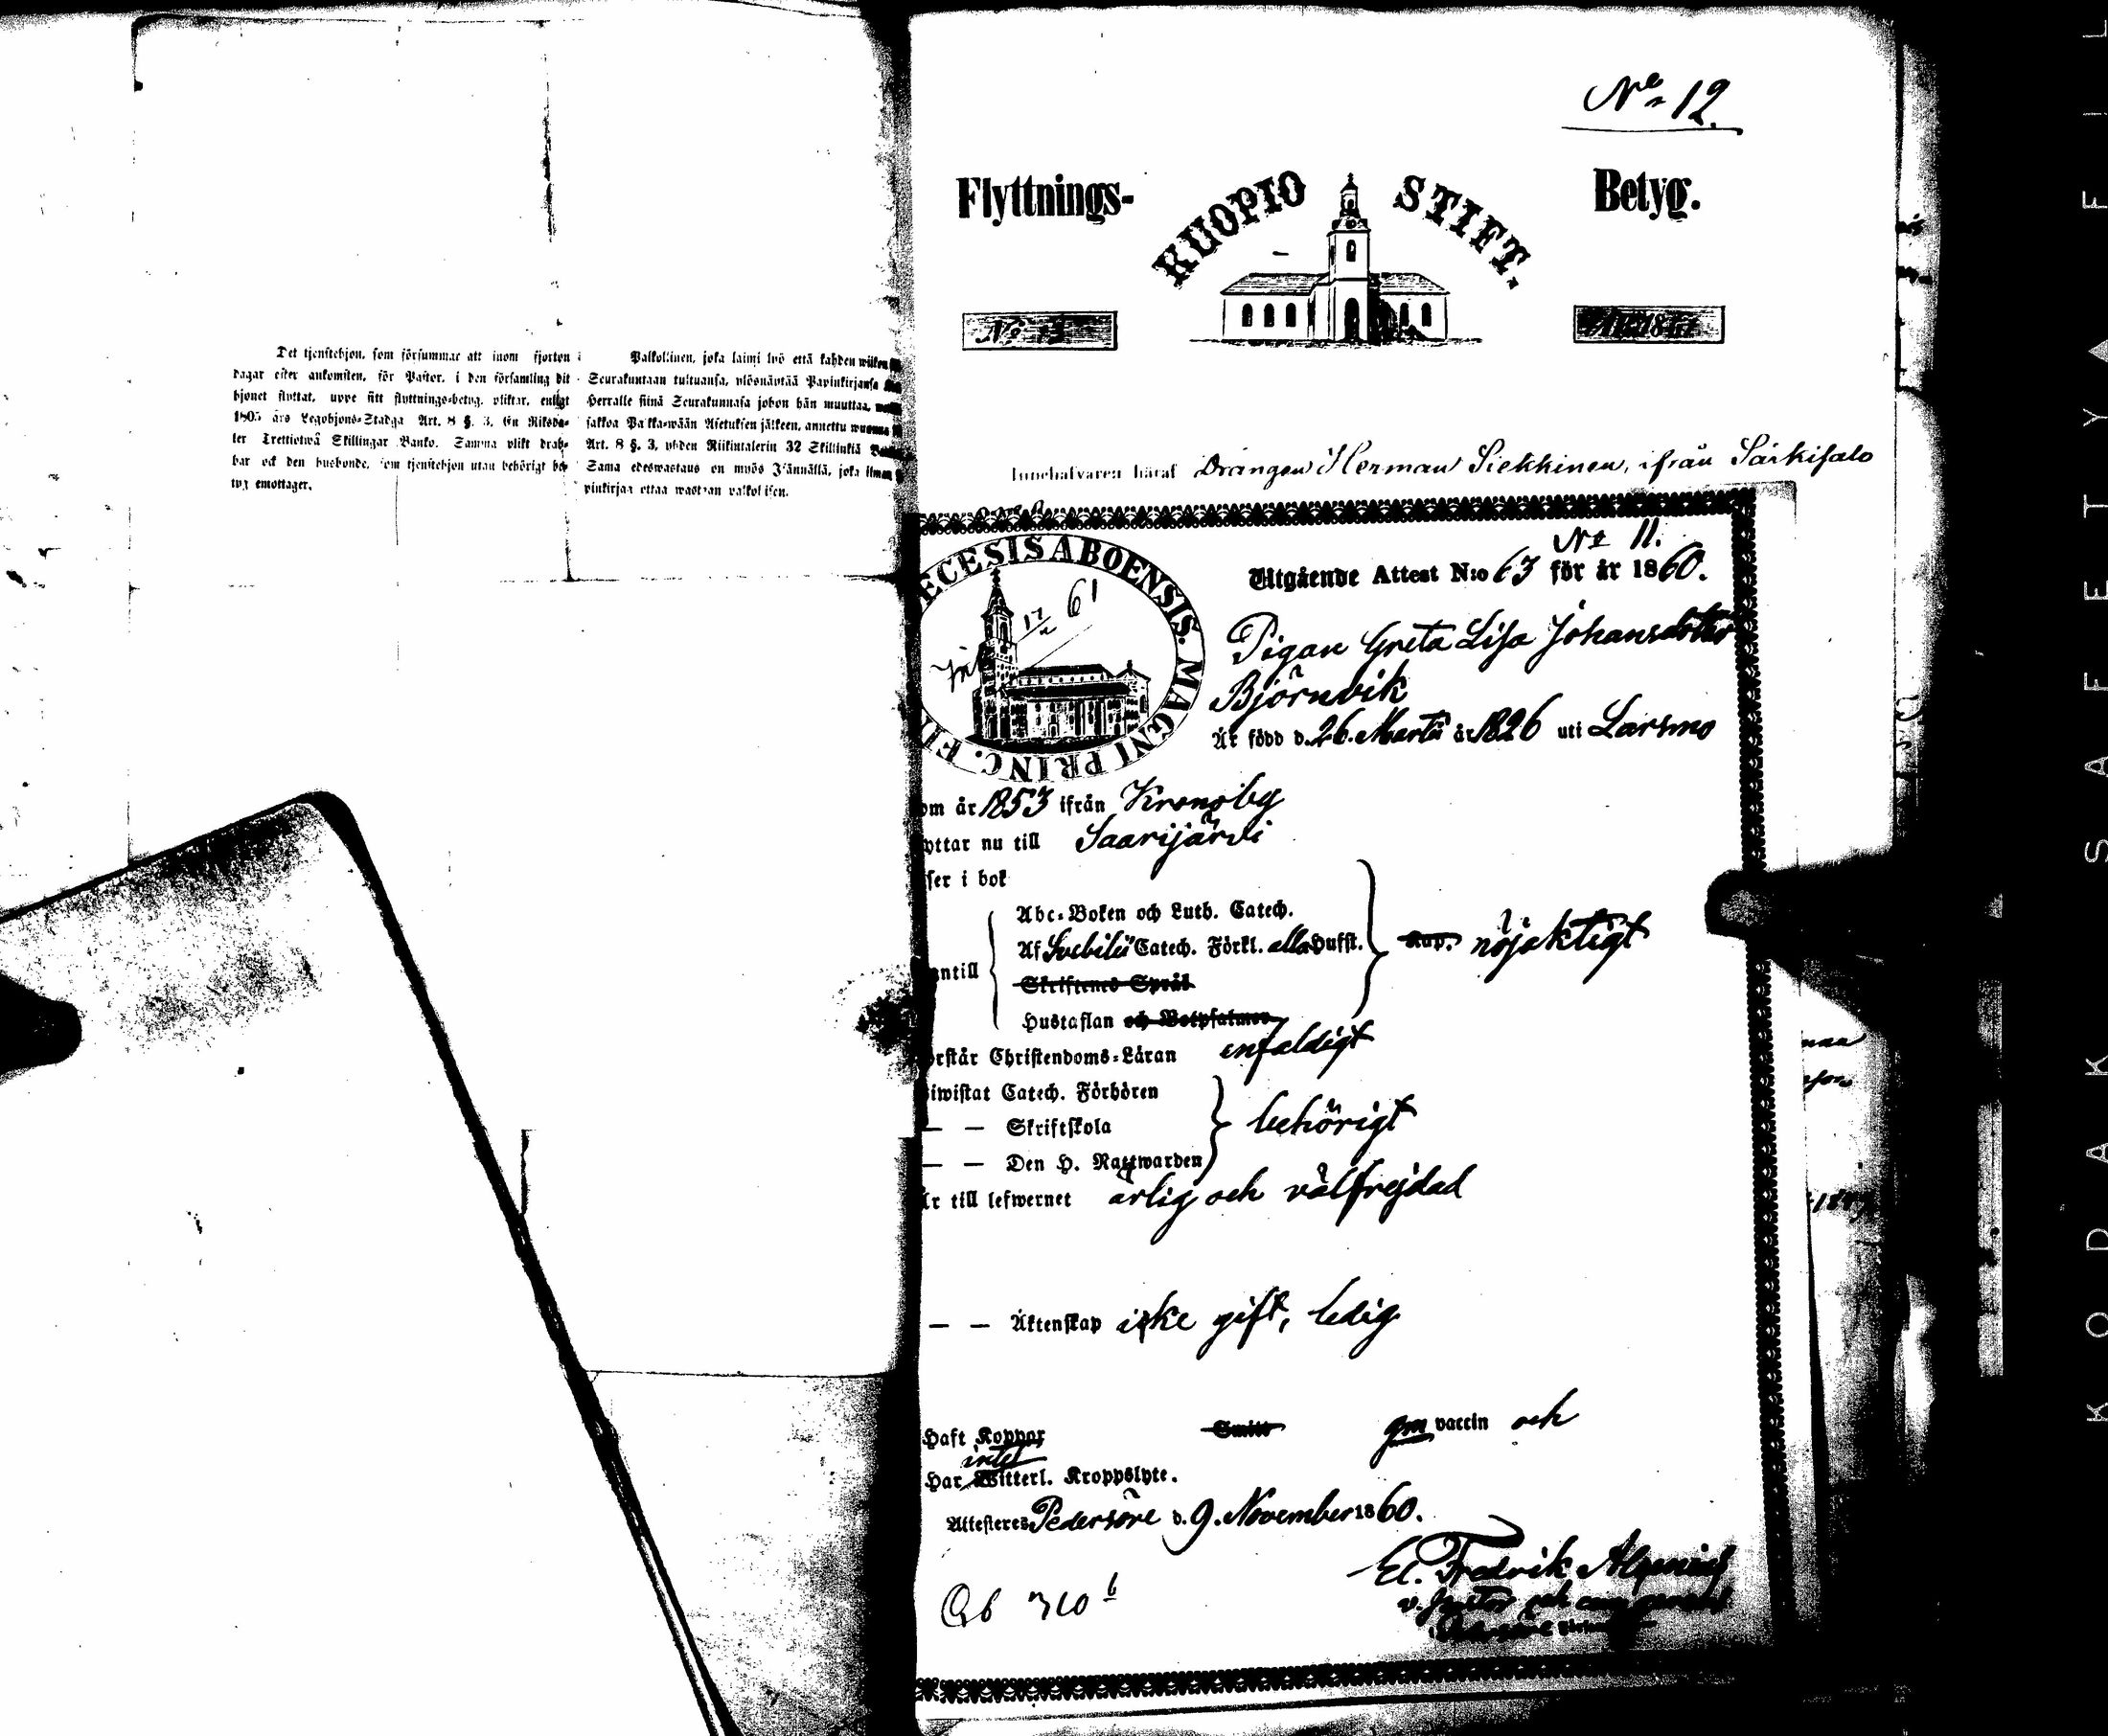 Det tjenstehjon, som försummar att inom fjorton
dagar efter ankomsten, för Pastor, i den församling dit
hjonet flyttat, uppe sitt flyttnings-betyg, pliktar, enligt
1805 års Legohjons-Stadga Art. 8 §. 3, En Riksda-
ler Trettiotwå Skillingar Banko. Samma plikt drab-
bar ock den husbonde, som tjenstehjon utan behörigt be-
tyg emottager.
Palkollinen, joka laimi lyö että kahden wiikon
Seurakuntaan tultuansa, ylösnäyttää Papinkirjansa
Herralle siinä Seurakunnasa johon hän muuttaa,
sakkoa Palkka-wään Asetuksen jälkeen, annettu wuonna
Art. 8 §. 3, yhden Riikintalerin 32 Skillinkiä
Sama edeswastaus on myös Isännällä, joka ilman
pinkirjaa ottaa wastaan palkollisen.
No 12.
Flyttnings- KUOPIO STIFT. Betyg.
No
Innehafvaren häraf Drängen Herman Siekkinen, ifrån Särkisalo
No 11.
ECESIS ABOENSIS. MAGNI PRINC. FI
17/2 61
Utgående Attest N:o 63 för år 1860.
Pigan Greta Lisa Johansdotter
Björnvik
Är född d. 26. Martii år 1826 uti Larsmo
om år 1853 ifrån Kronoby
yttar nu till Saarijärvi
ser i bok
Abc-Boken och Luth. Catech.
Af Svebilii Catech. Förkl. alla Hufst. Kap. nöjaktigt
antill
Skriftenes Språk
Hustaflan och Botpsalmer
örstår Christendoms-Läran enfaldigt
iwistat Catech. Förhören
— — Skriftskola behörigt
— — Den H. Nattwarden
är till lefwernet ärlig och välfrejdad
— — Äktenskap icke gift, ledig
Haft Koppor Smitt gm vaccin och
intet
Har Witterl. Kroppslyte.
Attesteres Pedersöre d. 9. November 1860.
El. Fredrik Alcenius
v. Pastor och